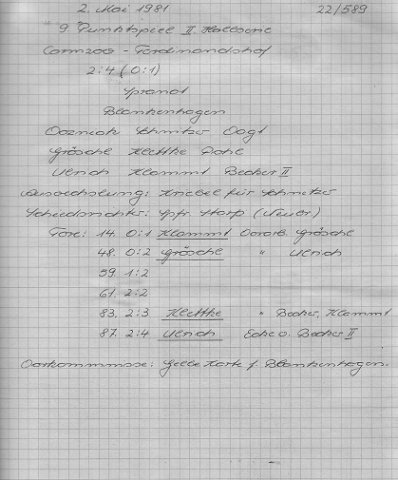 2. Mai 1981 22/589
9. Punktspiel II. Halbserie
Carmzow - Ferdinandshof
2:4 (0:1)
Ypranol
Blankenhagen
Schmitzo Vogt
Gräsche Klettke Pohl
Ulrich Klamml Becher II
Auswechslung: Knebel für Schmitzo
Schiedsrichter: Spfr. Harp
Tore: 14. 0:1 Klamml Vorarb. Gräsche
48. 0:2 Gräsche " Ulrich
59. 1:2
61. 2:2
83. 2:3 Klettke " Becher, Klamml
87. 2:4 Ulrich Ecke v. Becher II
Vorkommnisse: Gelbe Karte f. Blankenhagen.